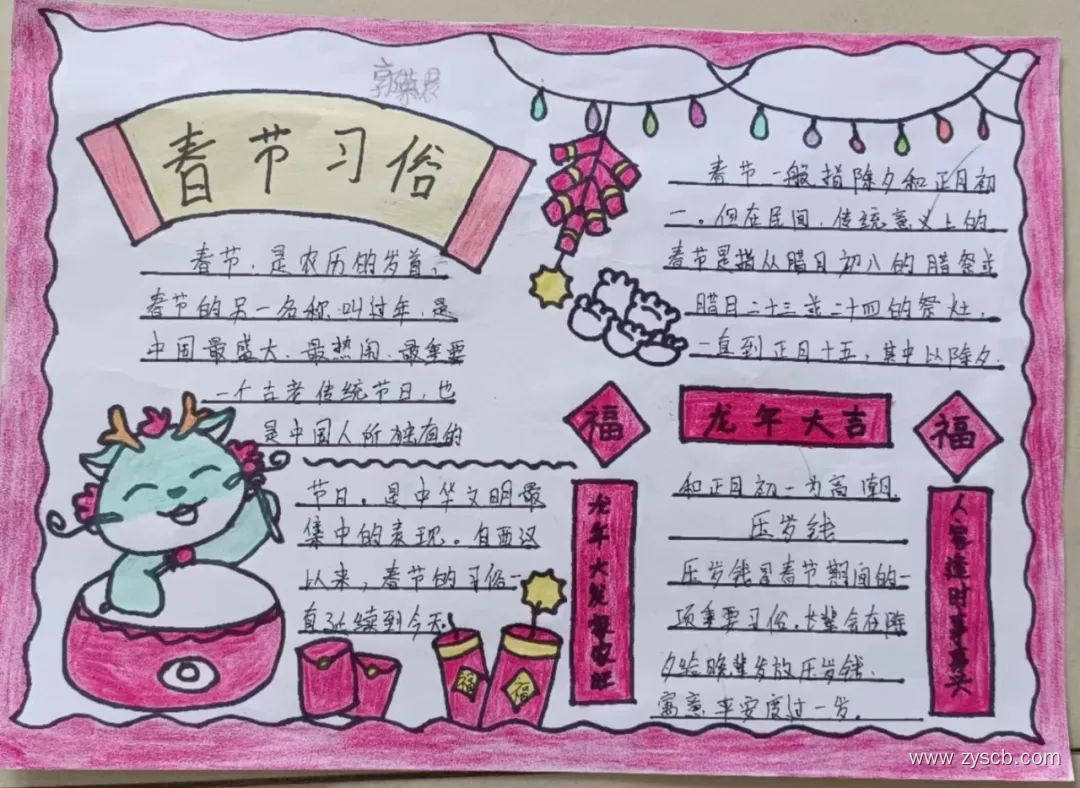 春节习俗
春节，是农历的岁首，
春节的另一名称叫过年，是
中国最盛大、最热闹、最重要
一个古老传统节日，也
是中国人所独有的
节日。是中华文明最
集中的表现。自西汉
以来，春节的习俗一
直延续到今天。
春节一般指除夕和正月初
一。但在民间，传统意义上的
春节是指从腊月初八的腊祭或
腊月二十三或二十四的祭灶，
一直到正月十五，其中以除夕
福
龙年大吉
福
和正月初一为高潮
压岁钱
压岁钱是春节期间的一
项重要习俗。长辈会在除
夕给晚辈发放压岁钱，
寓意平安度过一岁。
龙年大发家旺
人逢时事
福
福
www.zyscb.com